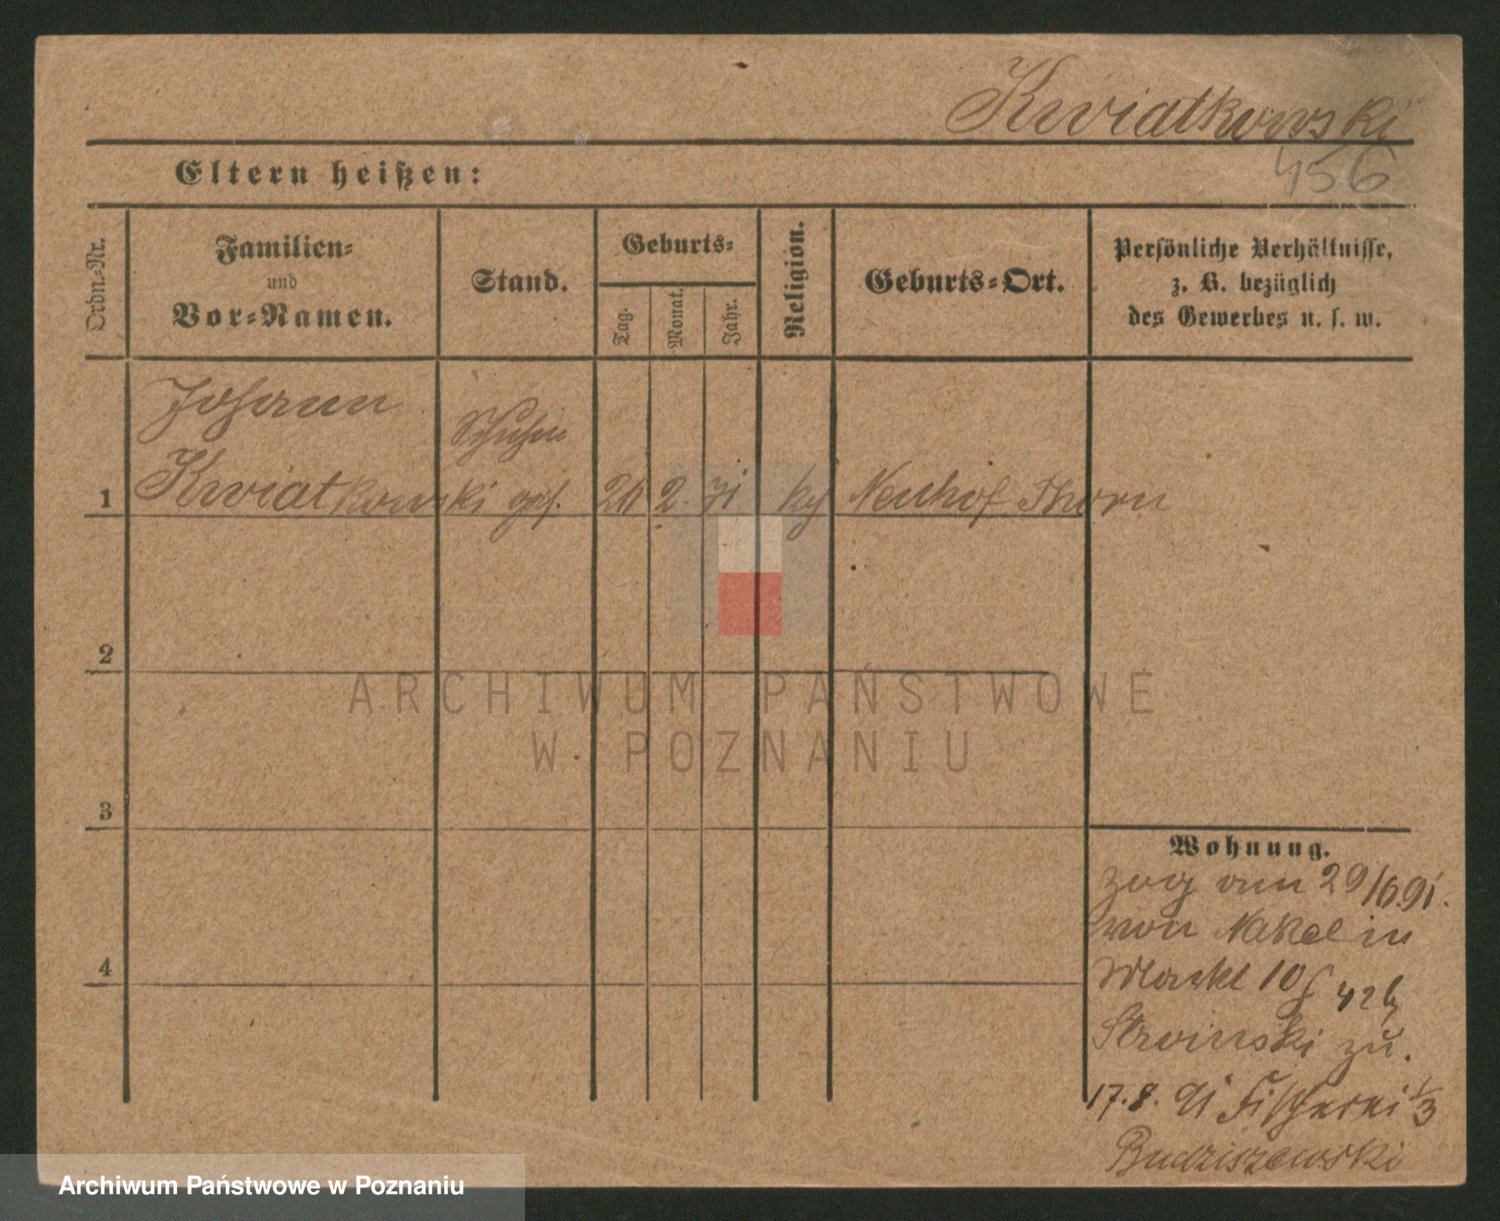 Kwiatkowski
Eltern heißen:
456
Ordn-Nr.
Familien-
und
Vor-Namen.
Stand.
Geburts-
Tag.
Monat.
Jahr.
Religion.
Geburts-Ort.
Persönliche Verhältnisse,
z. B. bezüglich
des Gewerbes u. s. w.
Johann
Schuhm
1 Kwiatkowski 26 2. 71 Neuhof Thorn
2
ARCHIWUM PAŃSTWOWE
W POZNANIU
3
Wohnung.
zog am 29/6 91.
von Nakel in
4
Markt 10 42 b
zu.
17.8. 91 Fischerei 1/3
Budziszewski
Archiwum Państwowe w Poznaniu